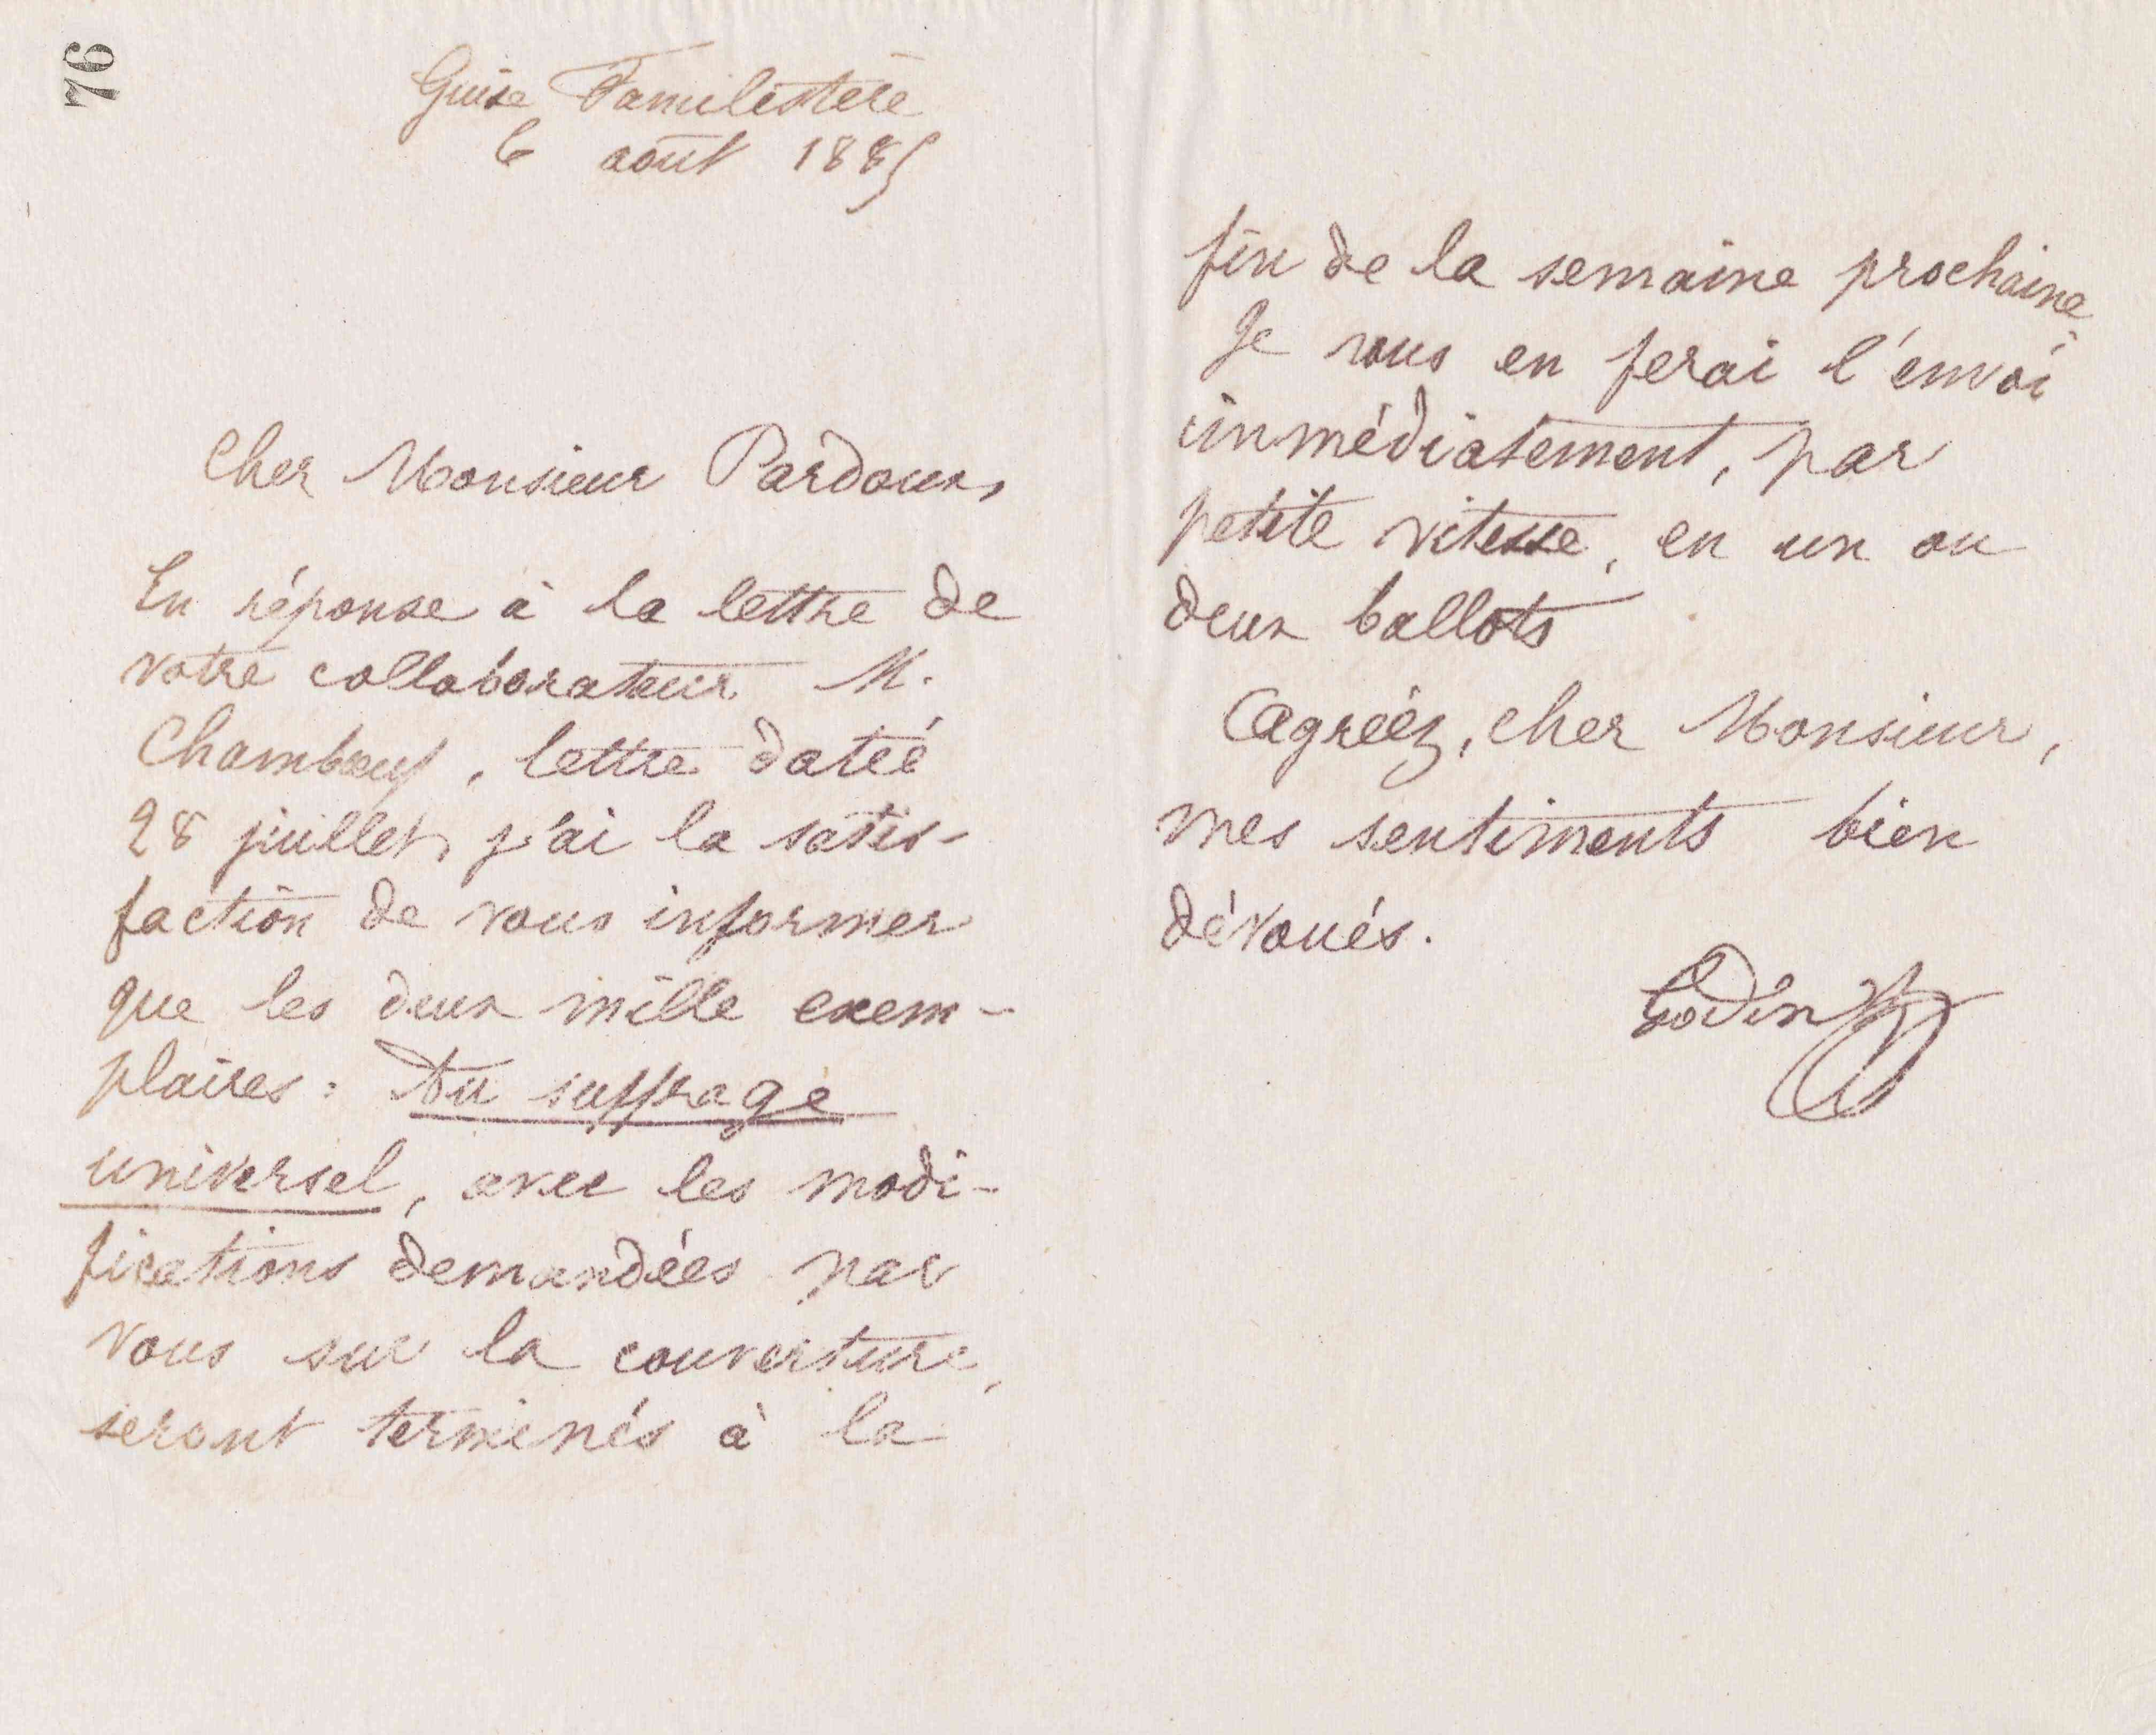 76
Guise Familistère
6 août 1885
Cher Monsieur Pardoux,
En réponse à la lettre de
votre collaborateur M.
Chambœuf, lettre datée
28 juillet, j'ai la satis-
faction de vous informer
que les deux mille exem-
plaires : Au suffrage
universel, avec les modi-
fications demandées par
vous sur la couverture,
seront terminés à la
fin de la semaine prochaine.
Je vous en ferai l'envoi
immédiatement, par
petite vitesse, en un ou
deux ballots
Agréez, cher Monsieur,
mes sentiments bien
dévoués.
Godin